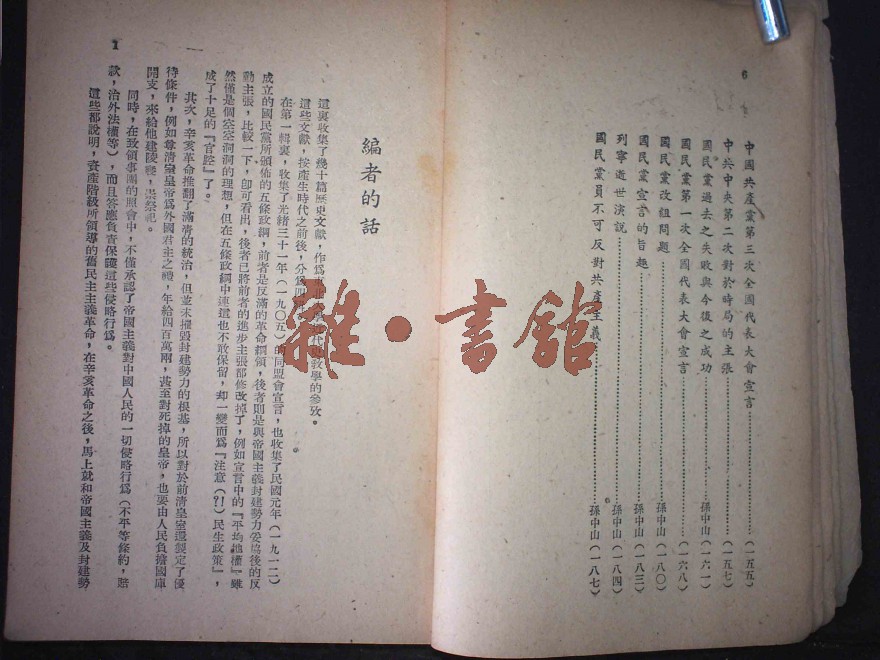 6
中國共產黨第三次全國代表大會宣言…………（一五五）
中共中央第二次對於時局的主張…………（一五七）
國民黨過去之失敗與今後之成功…………孫中山（一六一）
國民黨第一次全國代表大會宣言…………（一六八）
國民黨改組問題…………孫中山（一八〇）
國民黨宣言的旨趣…………孫中山（一八三）
列寧逝世演說…………孫中山（一八四）
國民黨員不可反對共產主義…………孫中山（一八七）
雜·書館
編者的話
這裏收集了幾十篇歷史文獻，作爲
教學的參攷。
這些文獻，按產生時代之前後，分爲四
在第一輯裏，收集了光緒三十一年（一九〇五）的同盟會宣言，也收集了民國元年（一九一二）
成立的國民黨所頒佈的五條政綱，前者是反滿的革命綱領，後者則是與帝國主義封建勢力妥協後的反
動主張，比較一下，卽可看出，後者已將前者的進步主張都修改掉了，例如宣言中的『平均地權』雖
然僅是個空空洞洞的理想，但在五條政綱中連這也不敢保留，却一變而爲『注意（?!）民生政策』，
成了十足的『官腔』了。
其次，辛亥革命推翻了滿清的統治，但並未摧毀封建勢力的根基，所以對於前清皇室還製定了優
待條件，例如尊清室皇帝爲外國君主之禮，年給四百萬兩，甚至對死掉的皇帝，也要由人民負擔國庫
開支，來給他建陵寢，祟祭祀。
同時，在致領事團的照會中，不僅承認了帝國主義對中國人民的一切侵略行爲（不平等條約，賠
款，治外法權等），而且答應負責保護這些侵略行爲。
這些都說明，資產階級所領導的舊民主主義革命，在辛亥革命之後，馬上就和帝國主義及封建勢
1